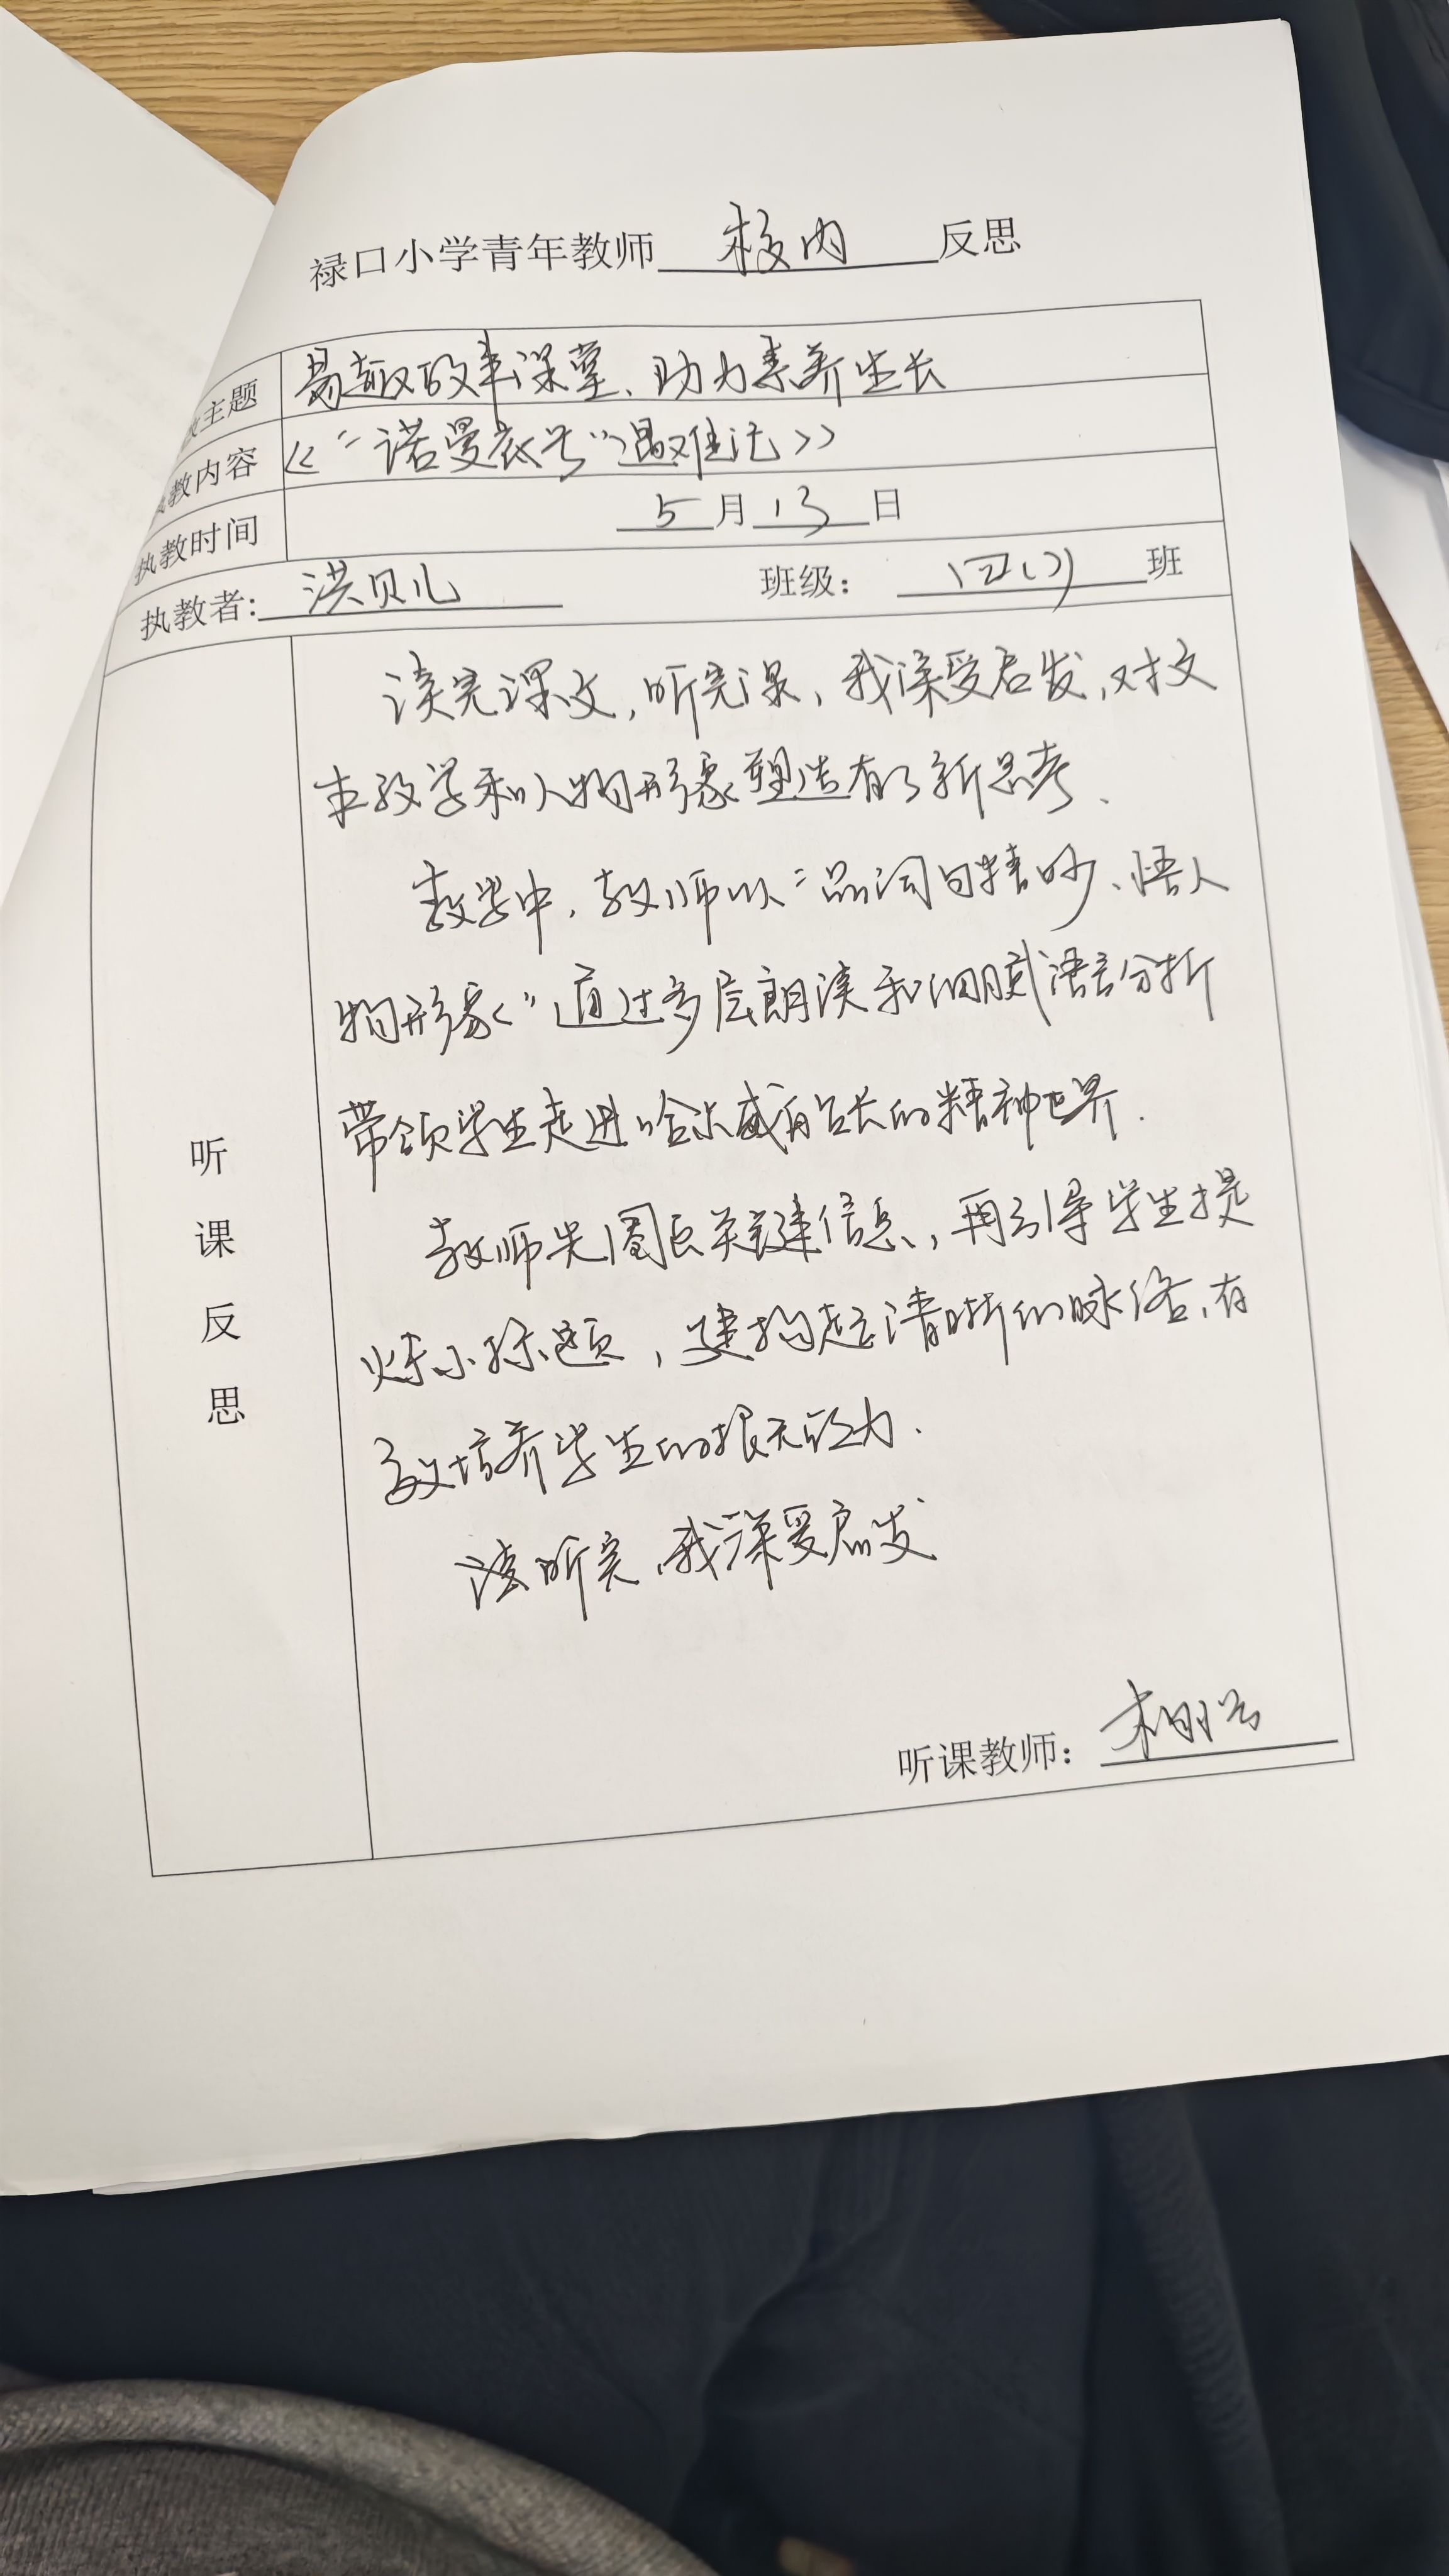 禄口小学青年教师 校内 反思
主题 易趣的丰课堂、助力素养生长
教内容 《“诺曼底号”遇难记》
执教时间 5月13日
执教者: 洪贝儿 班级: 四(1) 班
听课反思
读完课文,听完课,我深受启发,对文
本教学和人物形象塑造有了新思考、
教学中,教师以“品词句精妙、悟人
物形象”通过多层朗读和细腻语言分析
带领学生走进哈尔威船长的精神世界.
教师先圈画关键信息,再引导学生提
炼小标题,建构起清晰的脉络,有
效培养学生的概括能力.
读听完,我深受启发
听课教师: